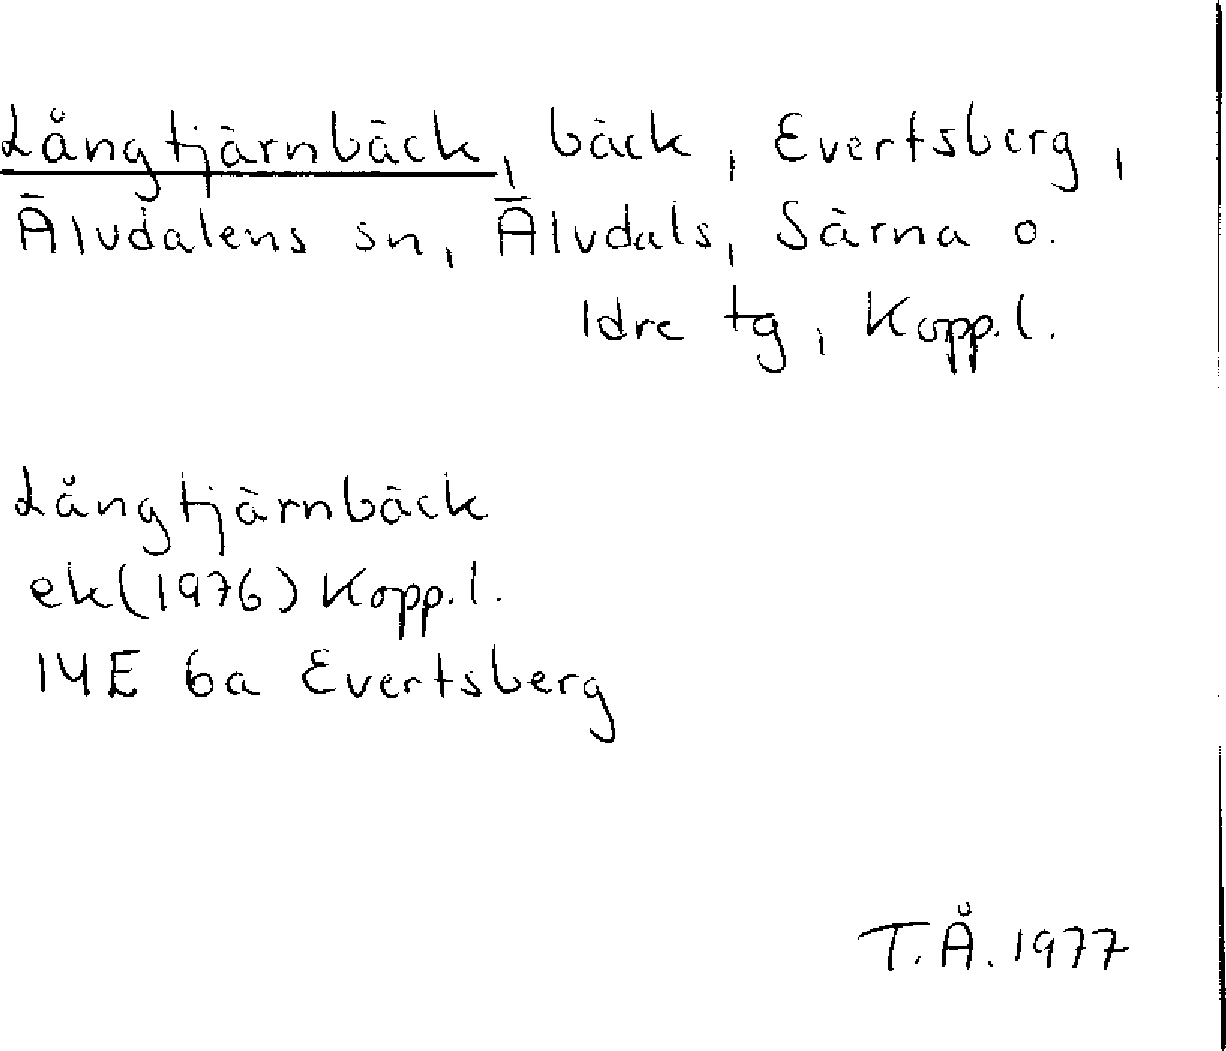 Långtjärnbäck, bäck, Evertsberg,
Älvdalens sn, Älvdals, Särna o.
Idre tg, Kopp.l.
Långtjärnbäck
ek(1976) Kopp.l.
14E 6a Evertsberg
T.Å. 1977